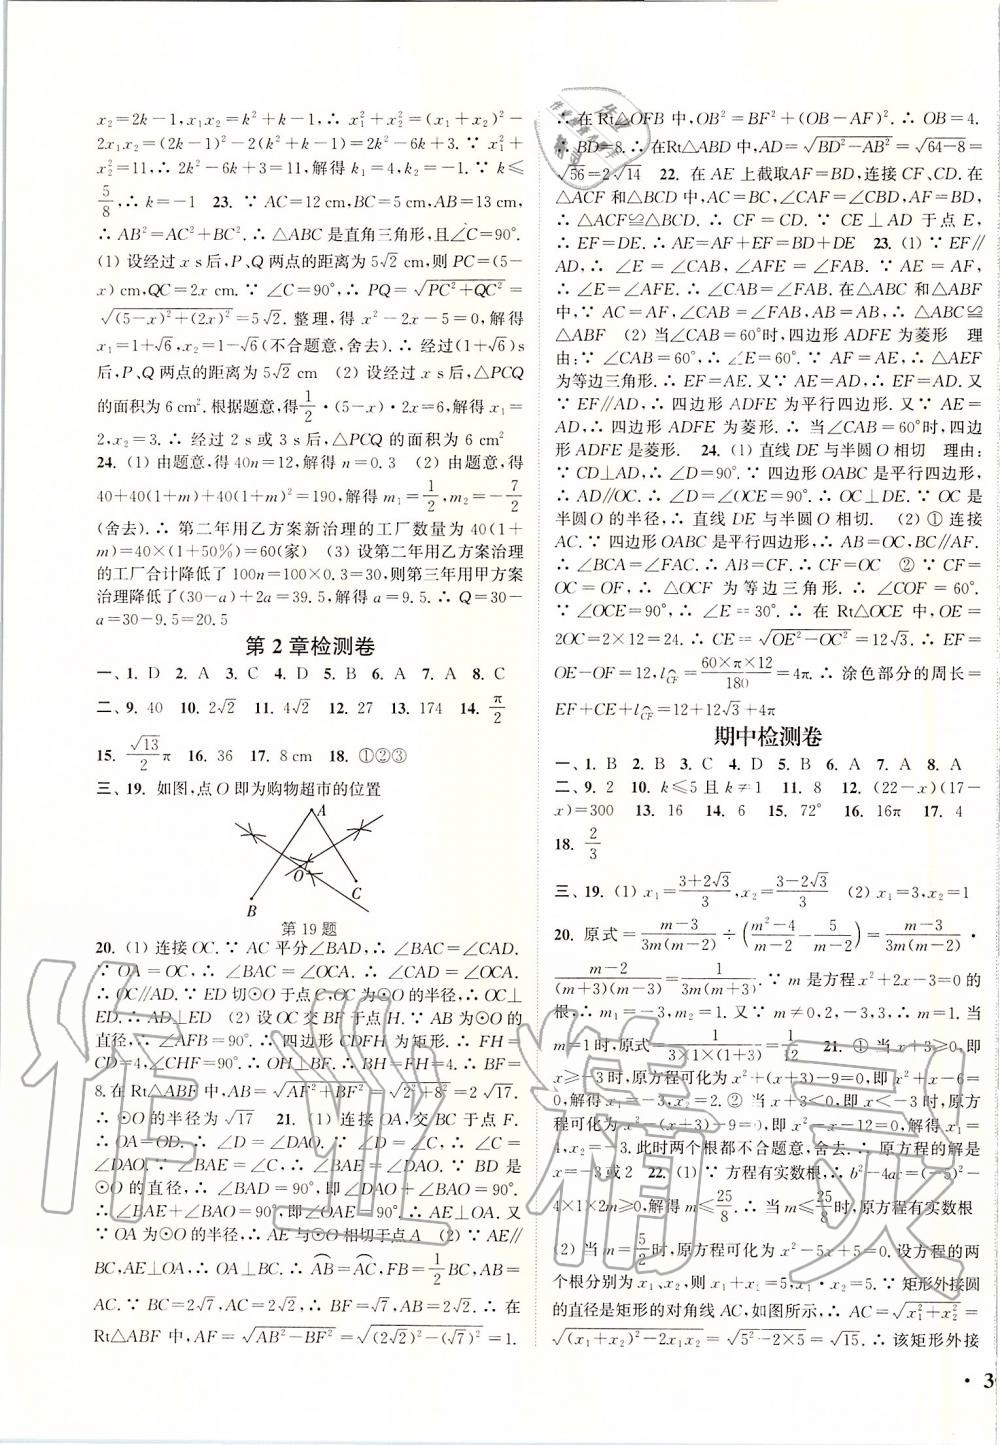 x₂=2k-1,x₁x₂=k²+k-1,∴ x₁²+x₂²=(x₁+x₂)²-
2x₁x₂=(2k-1)²-2(k²+k-1)=2k²-6k+3. ∵ x₁²+
x₂²=11,∴ 2k²-6k+3=11,解得 k₁=4,k₂=-1. ∵ k≤
5/8,∴ k=-1 23. ∵ AC=12 cm,BC=5 cm,AB=13 cm,
∴ AB²=AC²+BC². ∴ △ABC 是直角三角形,且∠C=90°.
(1) 设经过 x s后,P、Q 两点的距离为 5√2 cm,则 PC=(5-
x) cm,QC=2x cm. ∵ ∠C=90°,∴ PQ=√(PC²+QC²)=
√((5-x)²+(2x)²)=5√2. 整理,得 x²-2x-5=0,解得
x₁=1+√6,x₂=1-√6(不合题意,舍去). ∴ 经过(1+√6)s
后,P、Q 两点的距离为 5√2 cm (2) 设经过 x s后,△PCQ
的面积为 6 cm². 根据题意,得1/2·(5-x)·2x=6,解得 x₁=
2,x₂=3. ∴ 经过 2 s或 3 s后,△PCQ 的面积为 6 cm²
24. (1) 由题意,得 40n=12,解得 n=0.3 (2) 由题意,得
40+40(1+m)+40(1+m)²=190,解得 m₁=1/2,m₂=-7/2
(舍去). ∴ 第二年用乙方案新治理的工厂数量为 40(1+
m)=40×(1+50%)=60(家) (3) 设第二年用乙方案治理
的工厂合计降低了 100n=100×0.3=30,则第三年用甲方案
治理降低了(30-a)+2a=39.5,解得 a=9.5. ∴ Q=30-
a=30-9.5=20.5
第 2 章检测卷
一、1. D 2. A 3. C 4. D 5. B 6. A 7. A 8. C
二、9. 40 10. 2√2 11. 4√2 12. 27 13. 174 14. π/2
15. √13/2 π 16. 36 17. 8 cm 18. ①②③
三、19. 如图,点 O 即为购物超市的位置
A
O
B
C
第 19 题
20. (1) 连接 OC. ∵ AC 平分∠BAD,∴ ∠BAC=∠CAD.
∵ OA=OC,∴ ∠BAC=∠OCA. ∴ ∠CAD=∠OCA.
∴ OC∥AD. ∵ ED 切⊙O 于点 C,OC 为⊙O 的半径,∴ OC⊥
ED. ∴ AD⊥ED (2) 设 OC 交 BF 于点 H. ∵ AB 为⊙O 的
直径,∴ ∠AFB=90°. ∴ 四边形 CDFH 为矩形. ∴ FH=
CD=4,∠CHF=90°. ∴ OH⊥BF. ∴ BH=FH=4. ∴ BF=
8. 在 Rt△ABF 中,AB=√(AF²+BF²)=√(2²+8²)=2√17.
∴ ⊙O 的半径为√17 21. (1) 连接 OA,交 BC 于点 F.
∵ OA=OD,∴ ∠D=∠DAO. ∵ ∠D=∠C,∴ ∠C=
∠DAO. ∵ ∠BAE=∠C,∴ ∠BAE=∠DAO. ∵ BD 是
⊙O 的直径,∴ ∠BAD=90°,即∠DAO+∠BAO=90°.
∴ ∠BAE+∠BAO=90°,即∠OAE=90°. ∴ AE⊥OA. 又
∵ OA 为⊙O 的半径,∴ AE 与⊙O 相切于点 A (2) ∵ AE∥
BC,AE⊥OA,∴ OA⊥BC. ∴ AB=AC,FB=1/2BC. ∴ AB=
AC. ∵ BC=2√7,AC=2√2,∴ BF=√7,AB=2√2. ∴ 在
Rt△ABF 中,AF=√(AB²-BF²)=√((2√2)²-(√7)²)=1.
∴ 在 Rt△OFB 中,OB²=BF²+(OB-AF)². ∴ OB=4.
∴ BD=8. ∴ 在Rt△ABD中,AD=√(BD²-AB²)=√(64-8)=
√56=2√14 22. 在 AE 上截取AF=BD,连接 CF、CD. 在
△ACF 和△BCD 中,AC=BC,∠CAF=∠CBD,AF=BD,
∴ △ACF≌△BCD. ∴ CF=CD. ∵ CE⊥AD 于点 E,
∴ EF=DE. ∴ AE=AF+EF=BD+DE 23. (1) ∵ EF∥
AD,∴ ∠E=∠CAB,∠AFE=∠FAB. ∵ AE=AF,
∴ ∠E=∠AFE. ∴ ∠CAB=∠FAB. 在△ABC 和△ABF
中,∵ AC=AF,∠CAB=∠FAB,AB=AB,∴ △ABC≌
△ABF (2) 当∠CAB=60°时,四边形 ADFE 为菱形 理
由:∵ ∠CAB=60°,∴ ∠E=60°. ∵ AF=AE,∴ △AEF
为等边三角形. ∴ EF=AE. 又∵ AE=AD,∴ EF=AD. 又
∵ EF∥AD,∴ 四边形 ADFE 为平行四边形. 又∵ AE=
AD,∴ 四边形 ADFE 为菱形. ∴ 当∠CAB=60°时,四边
形 ADFE 是菱形. 24. (1) 直线 DE 与半圆 O 相切 理由:
∵ CD⊥AD,∴ ∠D=90°. ∵ 四边形 OABC 是平行四边形,
∴ AD∥OC. ∴ ∠D=∠OCE=90°. ∴ OC⊥DE. ∵ OC 是
半圆 O 的半径,∴ 直线 DE 与半圆 O 相切. (2) ① 连接
AC. ∵ 四边形 OABC 是平行四边形,∴ AB=OC,BC∥AF.
∴ ∠BCA=∠FAC. ∴ AB=CF. ∴ CF=OC ② ∵ CF=
OC=OF,∴ △OCF 为等边三角形. ∴ ∠COF=60°.
∵ ∠OCE=90°,∴ ∠E=30°. ∴ 在 Rt△OCE 中,OE=
2OC=2×12=24. ∴ CE=√(OE²-OC²)=12√3. ∴ EF=
OE-OF=12,l CF=(60×π×12)/180=4π. ∴ 涂色部分的周长=
EF+CE+l CF=12+12√3+4π
期中检测卷
一、1. B 2. B 3. C 4. D 5. B 6. A 7. A 8. A
二、9. 2 10. k≤5 且 k≠1 11. 8 12. (22-x)(17-
x)=300 13. 16 14. 6 15. 72° 16. 16π 17. 4
18. 2/3
三、19. (1) x₁=(3+2√3)/3,x₂=(3-2√3)/3 (2) x₁=3,x₂=1
20. 原式=(m-3)/(3m(m-2))÷((m²-4)/(m-2)-5/(m-2))=(m-3)/(3m(m-2))·
(m-2)/((m+3)(m-3))=1/(3m(m+3)). ∵ m 是方程 x²+2x-3=0 的
根,∴ m₁=-3,m₂=1. 又∵ m≠0,2,-3,3,∴ m=1. 当
m=1时,原式=1/(3×1×(1+3))=1/12 21. ① 当 x+3≥0,即
x≥-3 时,原方程可化为 x²+(x+3)-9=0,即 x²+x-6=
0,解得 x₁=-3,x₂=2. ② 当 x+3<0,即 x<-3 时,原方
程可化为 x²-(x+3)-9=0,即 x²-x-12=0,解得 x₁=
4,x₂=-3. 此时两个根都不合题意,舍去. ∴ 原方程的解是
x=-3 或 2 22. (1) ∵ 方程有实数根,∴ b²-4ac=(-5)²-
4×1×2m≥0,解得 m≤25/8. ∴ 当 m≤25/8时,原方程有实数根
(2) 当 m=5/2时,原方程可化为 x²-5x+5=0. 设方程的两
个根分别为 x₁、x₂,则 x₁+x₂=5,x₁·x₂=5. ∵ 矩形外接圆
的直径是矩形的对角线 AC,如图所示,∴ AC=√(x₁²+x₂²)=
√((x₁+x₂)²-2x₁x₂)=√(5²-2×5)=√15. ∴ 该矩形外接
· 3
作业精灵